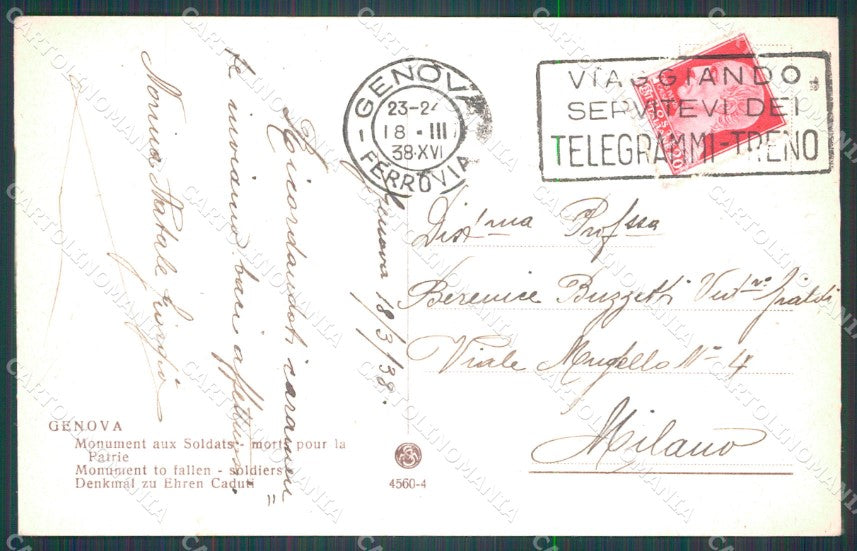 GENOVA
23-24
18 - III
38·XVI
FERROVIA
VIAGGIANDO
SERVITEVI DEI
TELEGRAMMI-TRENO
Genova 18/3/38.
Ricordandoti caramen„
te inviamo baci affettuosi.
Nonina Natale Giorgio
Dist.ma Prof.ssa
Berenice Buzzetti
Viale Mugello N= 4
Milano
GENOVA
Monument aux Soldats - morts pour la
Patrie
Monument to fallen - soldiers
Denkmal zu Ehren Caduti
4560-4
CARTOLINOMANIA